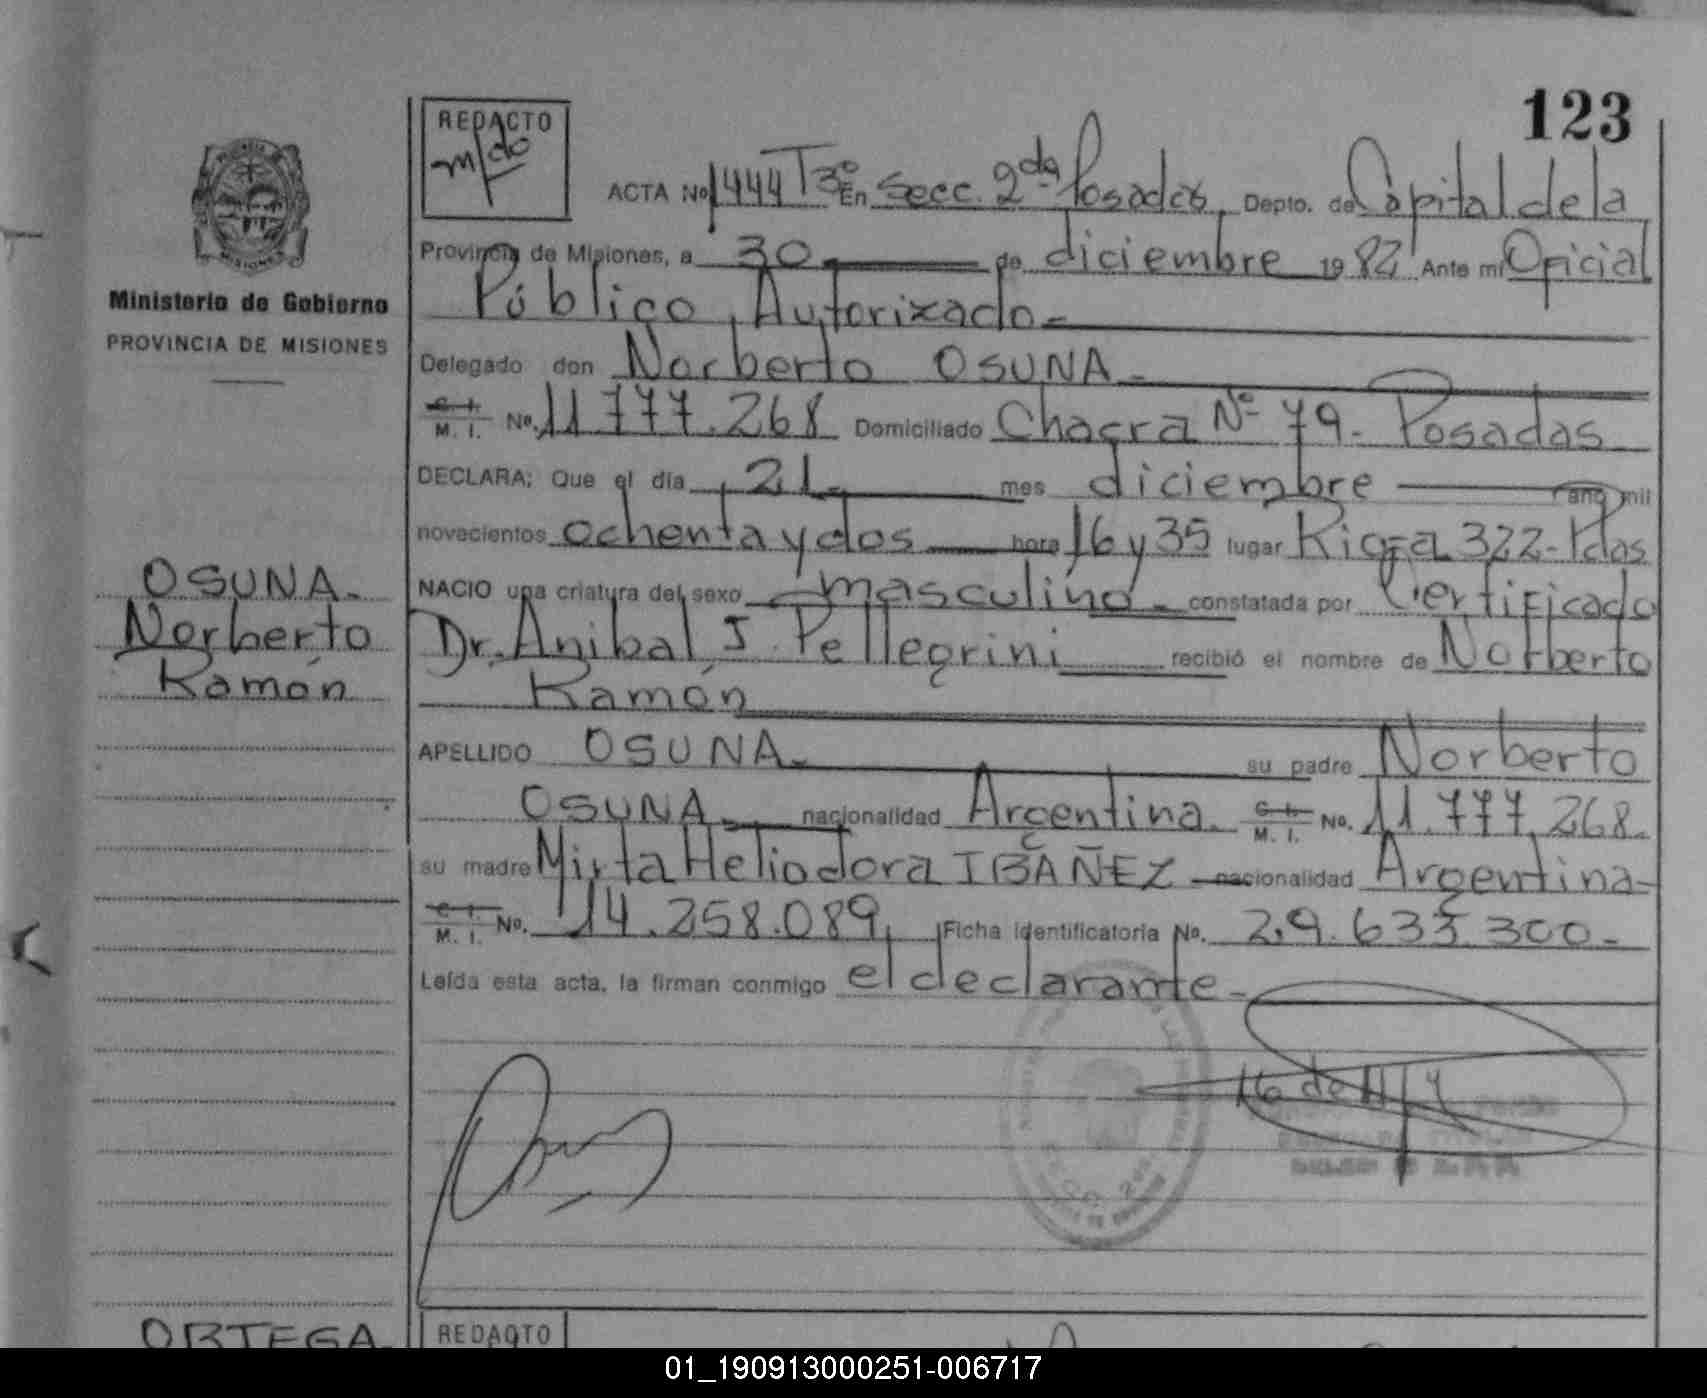 123
REDACTO
ACTA Nº 1444 Tº3 En Secc. 2da Posadas, Depto. de Capital de la
Provincia de Misiones, a 30 de diciembre 1982 Ante mi Oficial
Público, Autorizado.-
Ministerio de Gobierno
PROVINCIA DE MISIONES
Delegado don Norberto OSUNA.-
C. I.
M. I. Nº. 11.777.268 Domiciliado Chacra Nº 79.- Posadas
DECLARA: Que el día 21.- mes diciembre año mil
novecientos ochenta y dos hora 16 y 35 lugar Rioja 322- Pdas
NACIO una criatura del sexo masculino.- constatada por Certificado
Dr. Anibal J. Pellegrini recibió el nombre de Norberto
Ramón
OSUNA.-
Norberto
Ramón
APELLIDO OSUNA.- su padre Norberto
OSUNA.- nacionalidad Argentina. C. I.
M. I. Nº. 11.777.268.-
su madre Mirta Heliodora IBAÑEZ nacionalidad Argentina-
C. I.
M. I. Nº. 14.258.089, Ficha identificatoria Nº. 29.633.300.-
Leída esta acta, la firman conmigo el declarante.-
ORTEGA
REDACTO
01_190913000251-006717